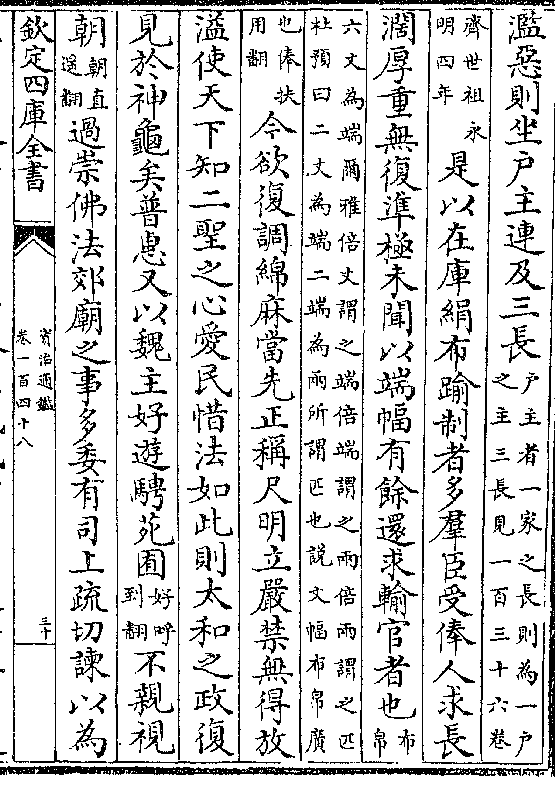 濫惡則坐户主連及三長户主者一家之長則為一户之主三長見一百三十六卷
齊世祖永明四年是以在庫絹布踰制者多羣臣受俸人求長
濶厚重無復準極未聞以端幅有餘還求輸官者也布帛
六丈為端爾雅倍丈謂之端倍端謂之兩倍兩謂之匹
杜預曰二丈為端二端為兩所謂匹也說文幅布帛廣
也俸扶用翻今欲復調綿麻當先正稱尺明立嚴禁無得放
溢使天下知二聖之心愛民惜法如此則太和之政復
見於神龜矣普惠又以魏主好遊騁苑囿好呼到翻不親視
朝朝直遥翻過崇佛法郊廟之事多委有司上疏切諫以為
欽定四庫全書
資治通鑑
卷一百四十八
三十